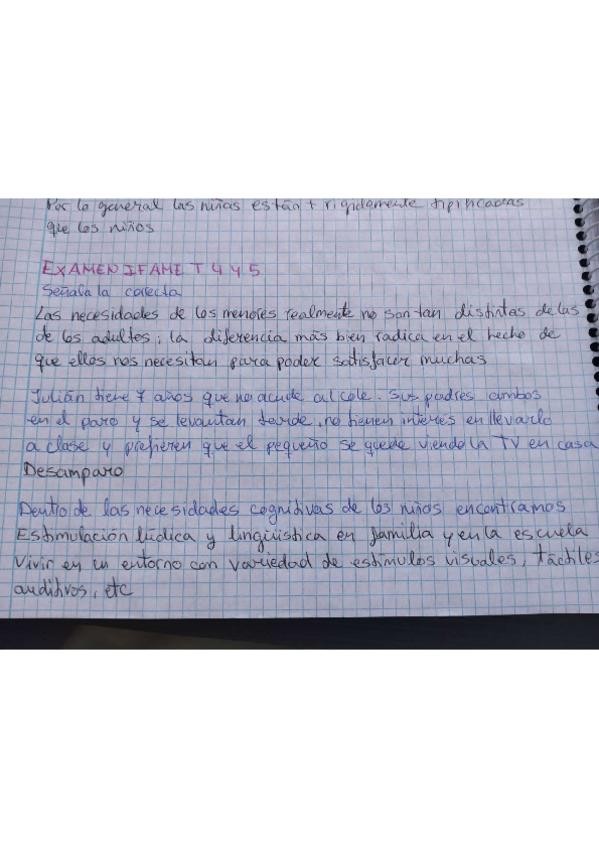 Por lo general las niñas están + rigidamente tipificadas
que los niños
EXAMEN IFAME T 4 Y 5
Señala la correcta
Las necesidades de los menores realmente no son tan distintas de las
de los adultos, la diferencia más bien radica en el hecho de
que ellos nos necesitan para poder satisfacer muchas
Julián tiene 7 años que no acude al cole. Sus padres ambos
en el paro y se levantan tarde, no tienen interés en llevarlo
a clase y prefieren que el pequeño se quede viendo la TV en casa
Desamparo
Dentro de las necesidades cognitivas de los niños encontramos
Estimulación lúdica y lingüística en familia y en la escuela
Vivir en un entorno con variedad de estímulos visuales, táctiles
auditivos, etc